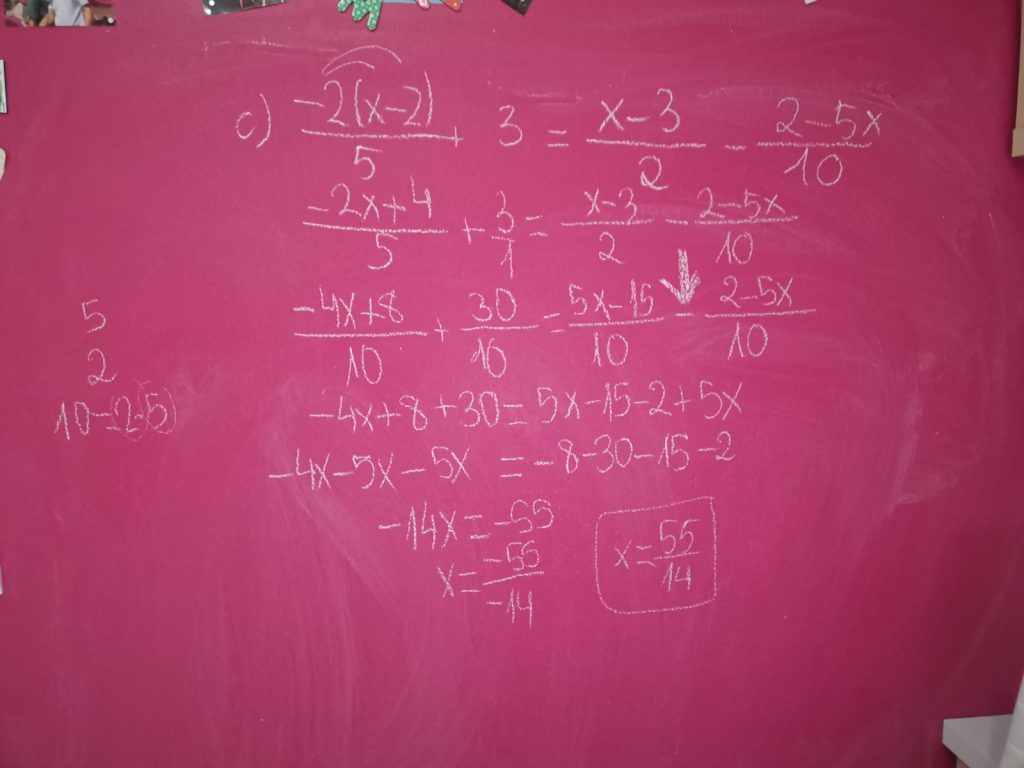 c) -2(x-2)/5 + 3 = x-3/2 - 2-5x/10
-2x+4/5 + 3/1 = x-3/2 - 2-5x/10
-4x+8/10 + 30/10 = 5x-15/10 - 2-5x/10
5
2
10=(2·5)
-4x+8+30=5x-15-2+5x
-4x-5x-5x = -8-30-15-2
-14x=-55
x=-55/-14
x=55/14